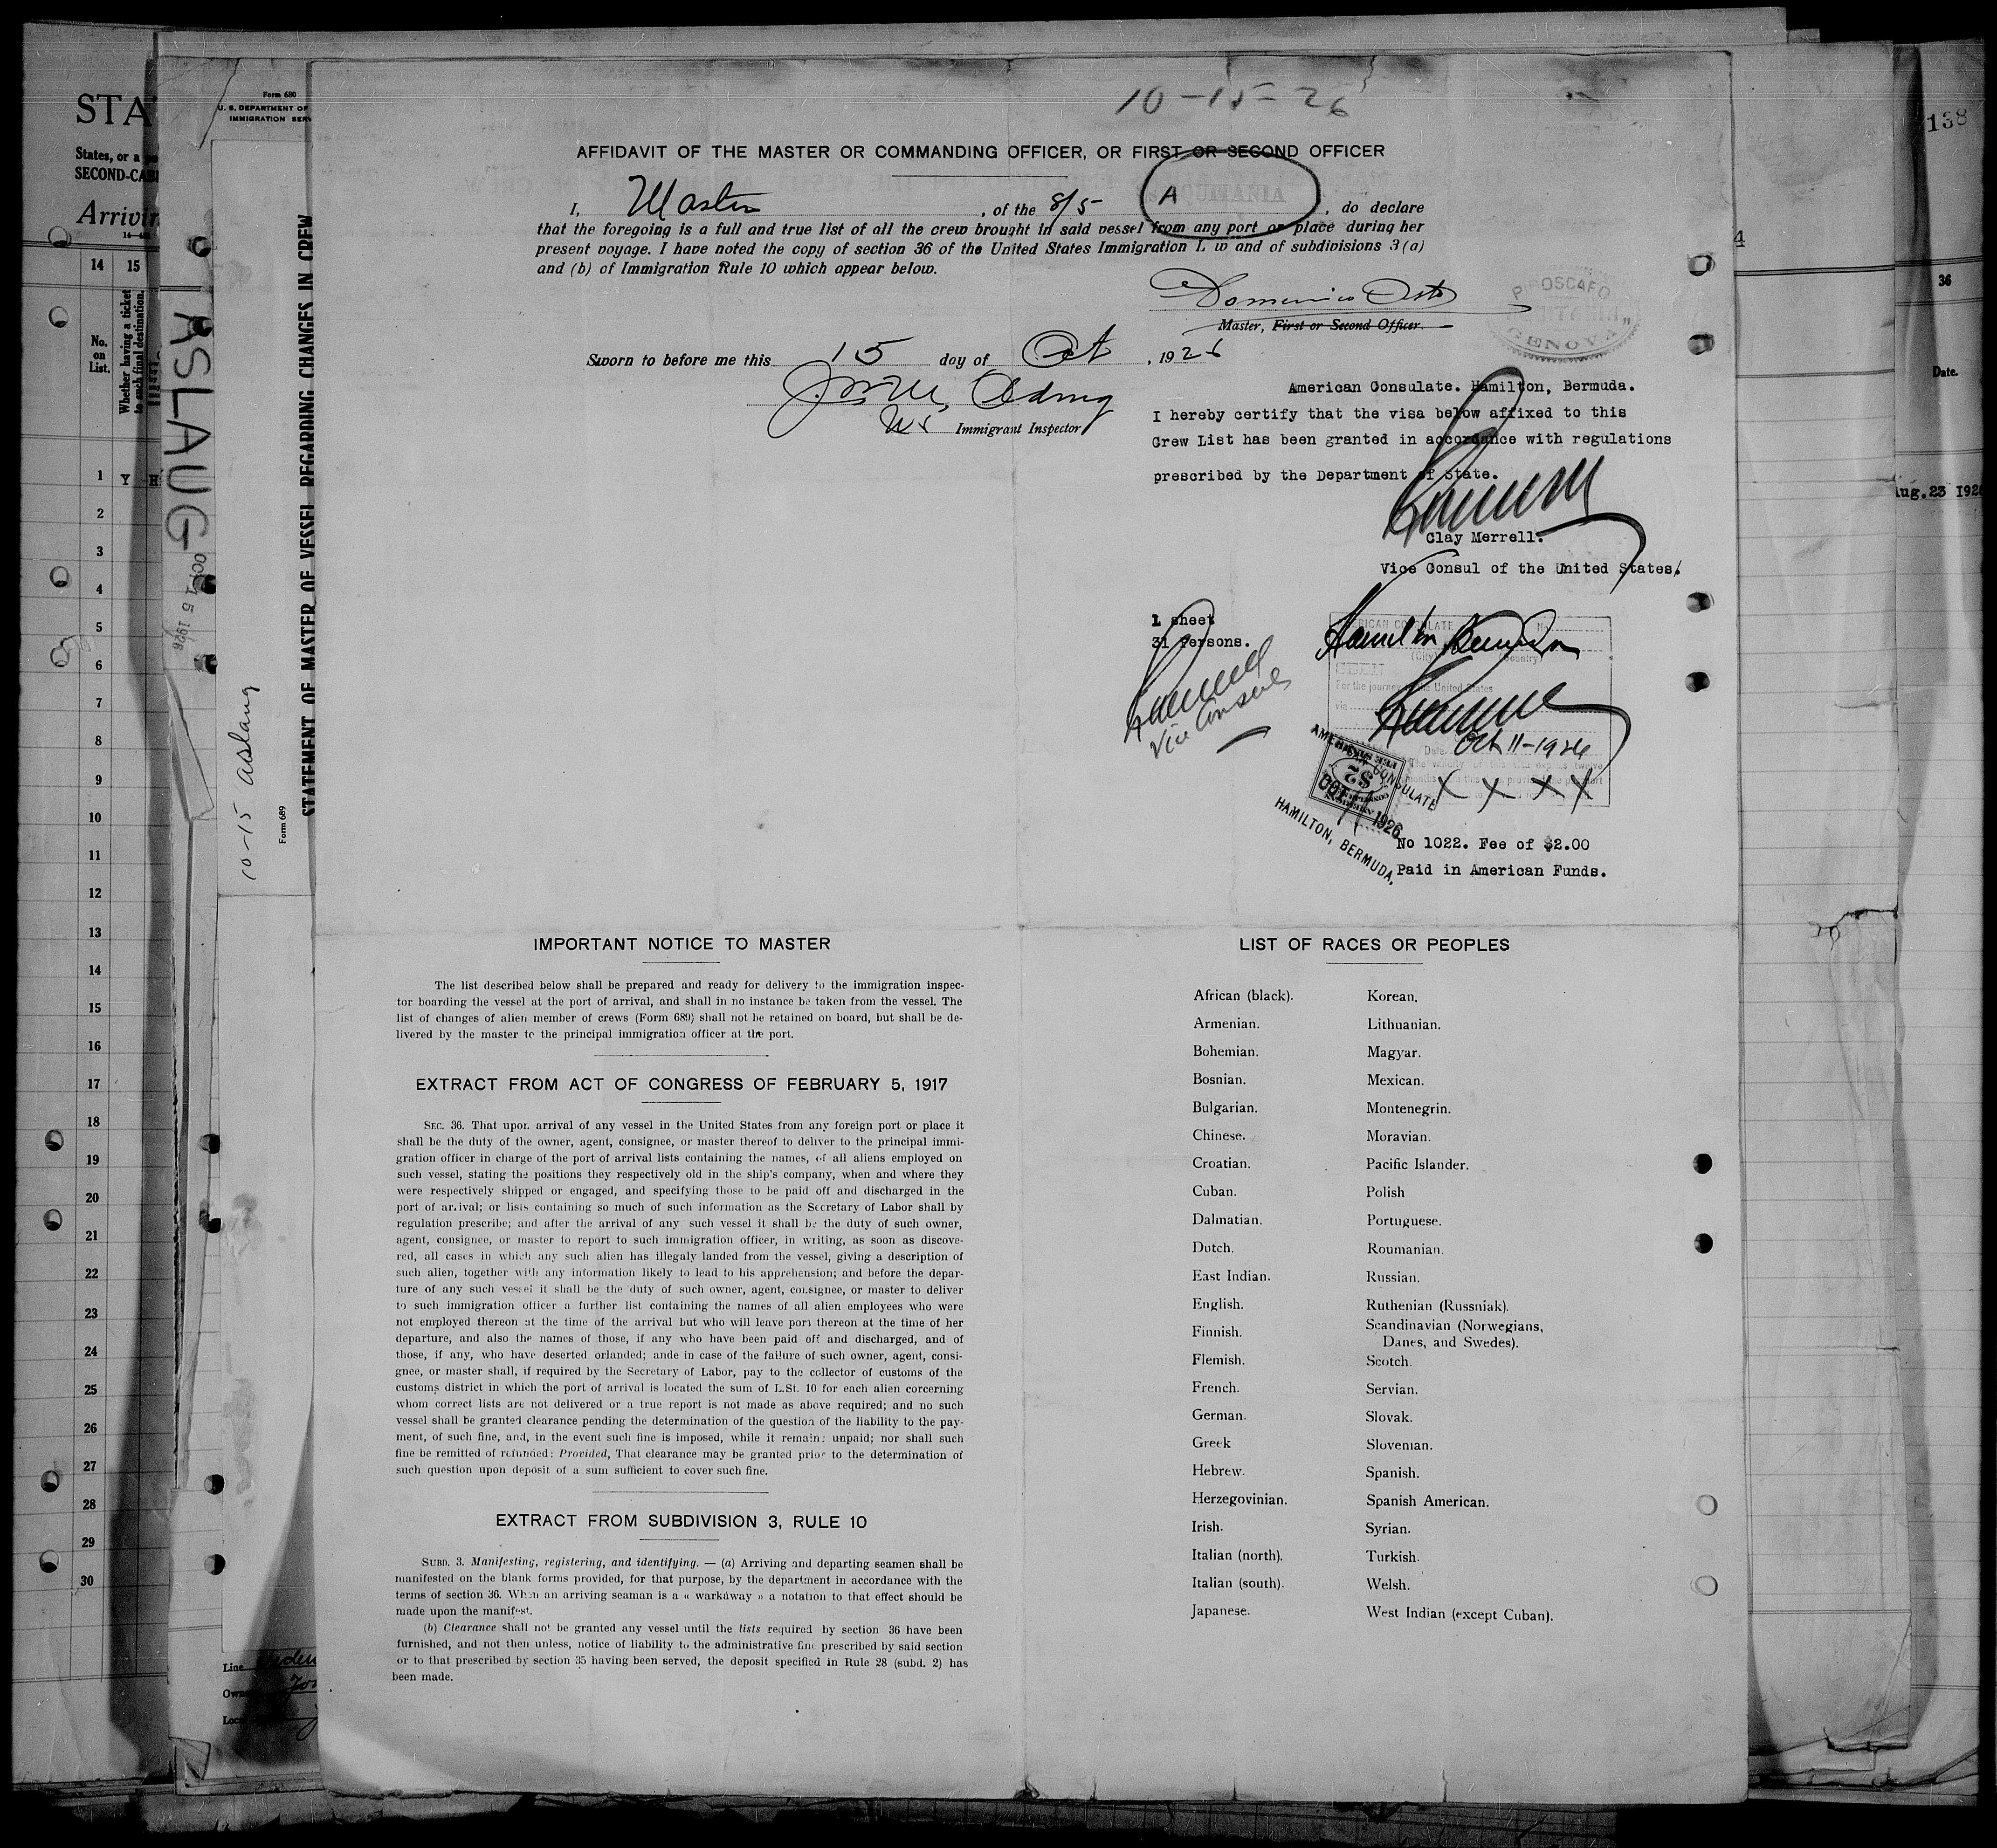 10-15-26
AFFIDAVIT OF THE MASTER OR COMMANDING OFFICER, OR FIRST OR SECOND OFFICER
I, Master, of the S/S A, do declare
that the foregoing is a full and true list of all the crew brought in said vessel from any port or place during her
present voyage. I have noted the copy of section 36 of the United States Immigration L w and of subdivisions 3 (a)
and (b) of Immigration Rule 10 which appear below.
Domenico
Master, First or Second Officer.
PIROSCAFO
GENOVA
Sworn to before me this 15 day of Oct, 1926
Immigrant Inspector
American Consulate. Hamilton, Bermuda.
I hereby certify that the visa below affixed to this
Crew List has been granted in accordance with regulations
prescribed by the Department of State.
Clay Merrell.
Vice Consul of the United States.
1 sheet
31 Persons.
Vice Consul
AMERICAN CONSULATE
Hamilton Bermuda
(City) (Country)
For the journey to the United States
via
Date Oct 11-1926
X X X X
AMERICAN CONSULATE
$2
OCT 11 1926
HAMILTON, BERMUDA.
No 1022. Fee of $2.00
Paid in American Funds.
IMPORTANT NOTICE TO MASTER
The list described below shall be prepared and ready for delivery to the immigration inspec-
tor boarding the vessel at the port of arrival, and shall in no instance be taken from the vessel. The
list of changes of alien member of crews (Form 689) shall not be retained on board, but shall be de-
livered by the master to the principal immigration officer at the port.
EXTRACT FROM ACT OF CONGRESS OF FEBRUARY 5, 1917
SEC. 36. That upon arrival of any vessel in the United States from any foreign port or place it
shall be the duty of the owner, agent, consignee, or master thereof to deliver to the principal immi-
gration officer in charge of the port of arrival lists containing the names, of all aliens employed on
such vessel, stating the positions they respectively old in the ship's company, when and where they
were respectively shipped or engaged, and specifying those to be paid off and discharged in the
port of arrival; or lists containing so much of such information as the Secretary of Labor shall by
regulation prescribe; and after the arrival of any such vessel it shall be the duty of such owner,
agent, consignee, or master to report to such immigration officer, in writing, as soon as discove-
red, all cases in which any such alien has illegaly landed from the vessel, giving a description of
such alien, together with any information likely to lead to his apprehension; and before the depar-
ture of any such vessel it shall be the duty of such owner, agent, consignee, or master to deliver
to such immigration officer a further list containing the names of all alien employees who were
not employed thereon at the time of the arrival but who will leave port thereon at the time of her
departure, and also the names of those, if any who have been paid off and discharged, and of
those, if any, who have deserted orlanded; ande in case of the failure of such owner, agent, consi-
gnee, or master shall, if required by the Secretary of Labor, pay to the collector of customs of the
customs district in which the port of arrival is located the sum of L.St. 10 for each alien corcerning
whom correct lists are not delivered or a true report is not made as above required; and no such
vessel shall be granted clearance pending the determination of the question of the liability to the pay-
ment, of such fine, and, in the event such fine is imposed, while it remain: unpaid; nor shall such
fine be remitted of refunded: Provided, That clearance may be granted prior to the determination of
such question upon deposit of a sum sufficient to cover such fine.
EXTRACT FROM SUBDIVISION 3, RULE 10
SUBD. 3. Manifesting, registering, and identifying. — (a) Arriving and departing seamen shall be
manifested on the blank forms provided, for that purpose, by the department in accordance with the
terms of section 36. When an arriving seaman is a « warkaway » a notation to that effect should be
made upon the manifest.
(b) Clearance shall not be granted any vessel until the lists required by section 36 have been
furnished, and not then unless, notice of liability to the administrative fine prescribed by said section
or to that prescribed by section 35 having been served, the deposit specified in Rule 28 (subd. 2) has
been made.
LIST OF RACES OR PEOPLES
African (black). Korean.
Armenian. Lithuanian.
Bohemian. Magyar.
Bosnian. Mexican.
Bulgarian. Montenegrin.
Chinese. Moravian.
Croatian. Pacific Islander.
Cuban. Polish
Dalmatian. Portuguese.
Dutch. Roumanian.
East Indian. Russian.
English. Ruthenian (Russniak).
Finnish. Scandinavian (Norwegians,
Danes, and Swedes).
Flemish. Scotch.
French. Servian.
German. Slovak.
Greek Slovenian.
Hebrew. Spanish.
Herzegovinian. Spanish American.
Irish. Syrian.
Italian (north). Turkish.
Italian (south). Welsh.
Japanese. West Indian (except Cuban).
STA
States, or a
SECOND-CAB
Arrivin
14 15
No.
on
List.
Whether having a ticket
to such final destination.
1 Y H
2
3
4
5
6
7
8
9
10
11
12
13
14
15
16
17
18
19
20
21
22
23
24
25
26
27
28
29
30
ASLAUG
OCT 15 1926
Form 680
U. S. DEPARTMENT OF
IMMIGRATION SERV
STATEMENT OF MASTER OF VESSEL REGARDING CHANGES IN CREW
Form 689
10-15 Aslaug
Line
Owne
Loca
138
4
36
Date.
Aug. 23 1926